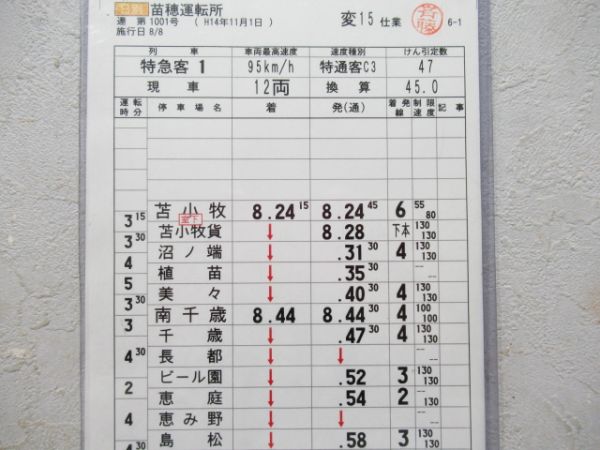 苗穂運転所
運 第 1001号 ( H14年11月1日 ) 変15 仕業 6-1
施行日 8/8
列 車 車両最高速度 速度種別 けん引定数
特急客 1 95km/h 特通客C3 47
現 車 12両 換 算 45.0
運転時分 停 車 場 名 着 発(通) 着発線 制限速度 記 事
苫 小 牧 8.24 15 8.24 45 6 55 80
3 15
苫小牧貨 ↓ 8.28 下本 130 130
3 30
沼 ノ 端 ↓ .31 30 4 130 130
4
植 苗 ↓ .35 30 -- --
5
美 々 ↓ .40 30 4 130 130
3 30
南 千 歳 8.44 8.44 30 4 100 100
3
千 歳 ↓ .47 30 4 130 130
長 都 ↓ ↓ -- --
4 30
ビール園 ↓ .52 3 130 130
2
恵 庭 ↓ .54 2 130 --
恵 み 野 ↓ ↓ -- --
4
島 松 ↓ .58 3 130 130
4 30